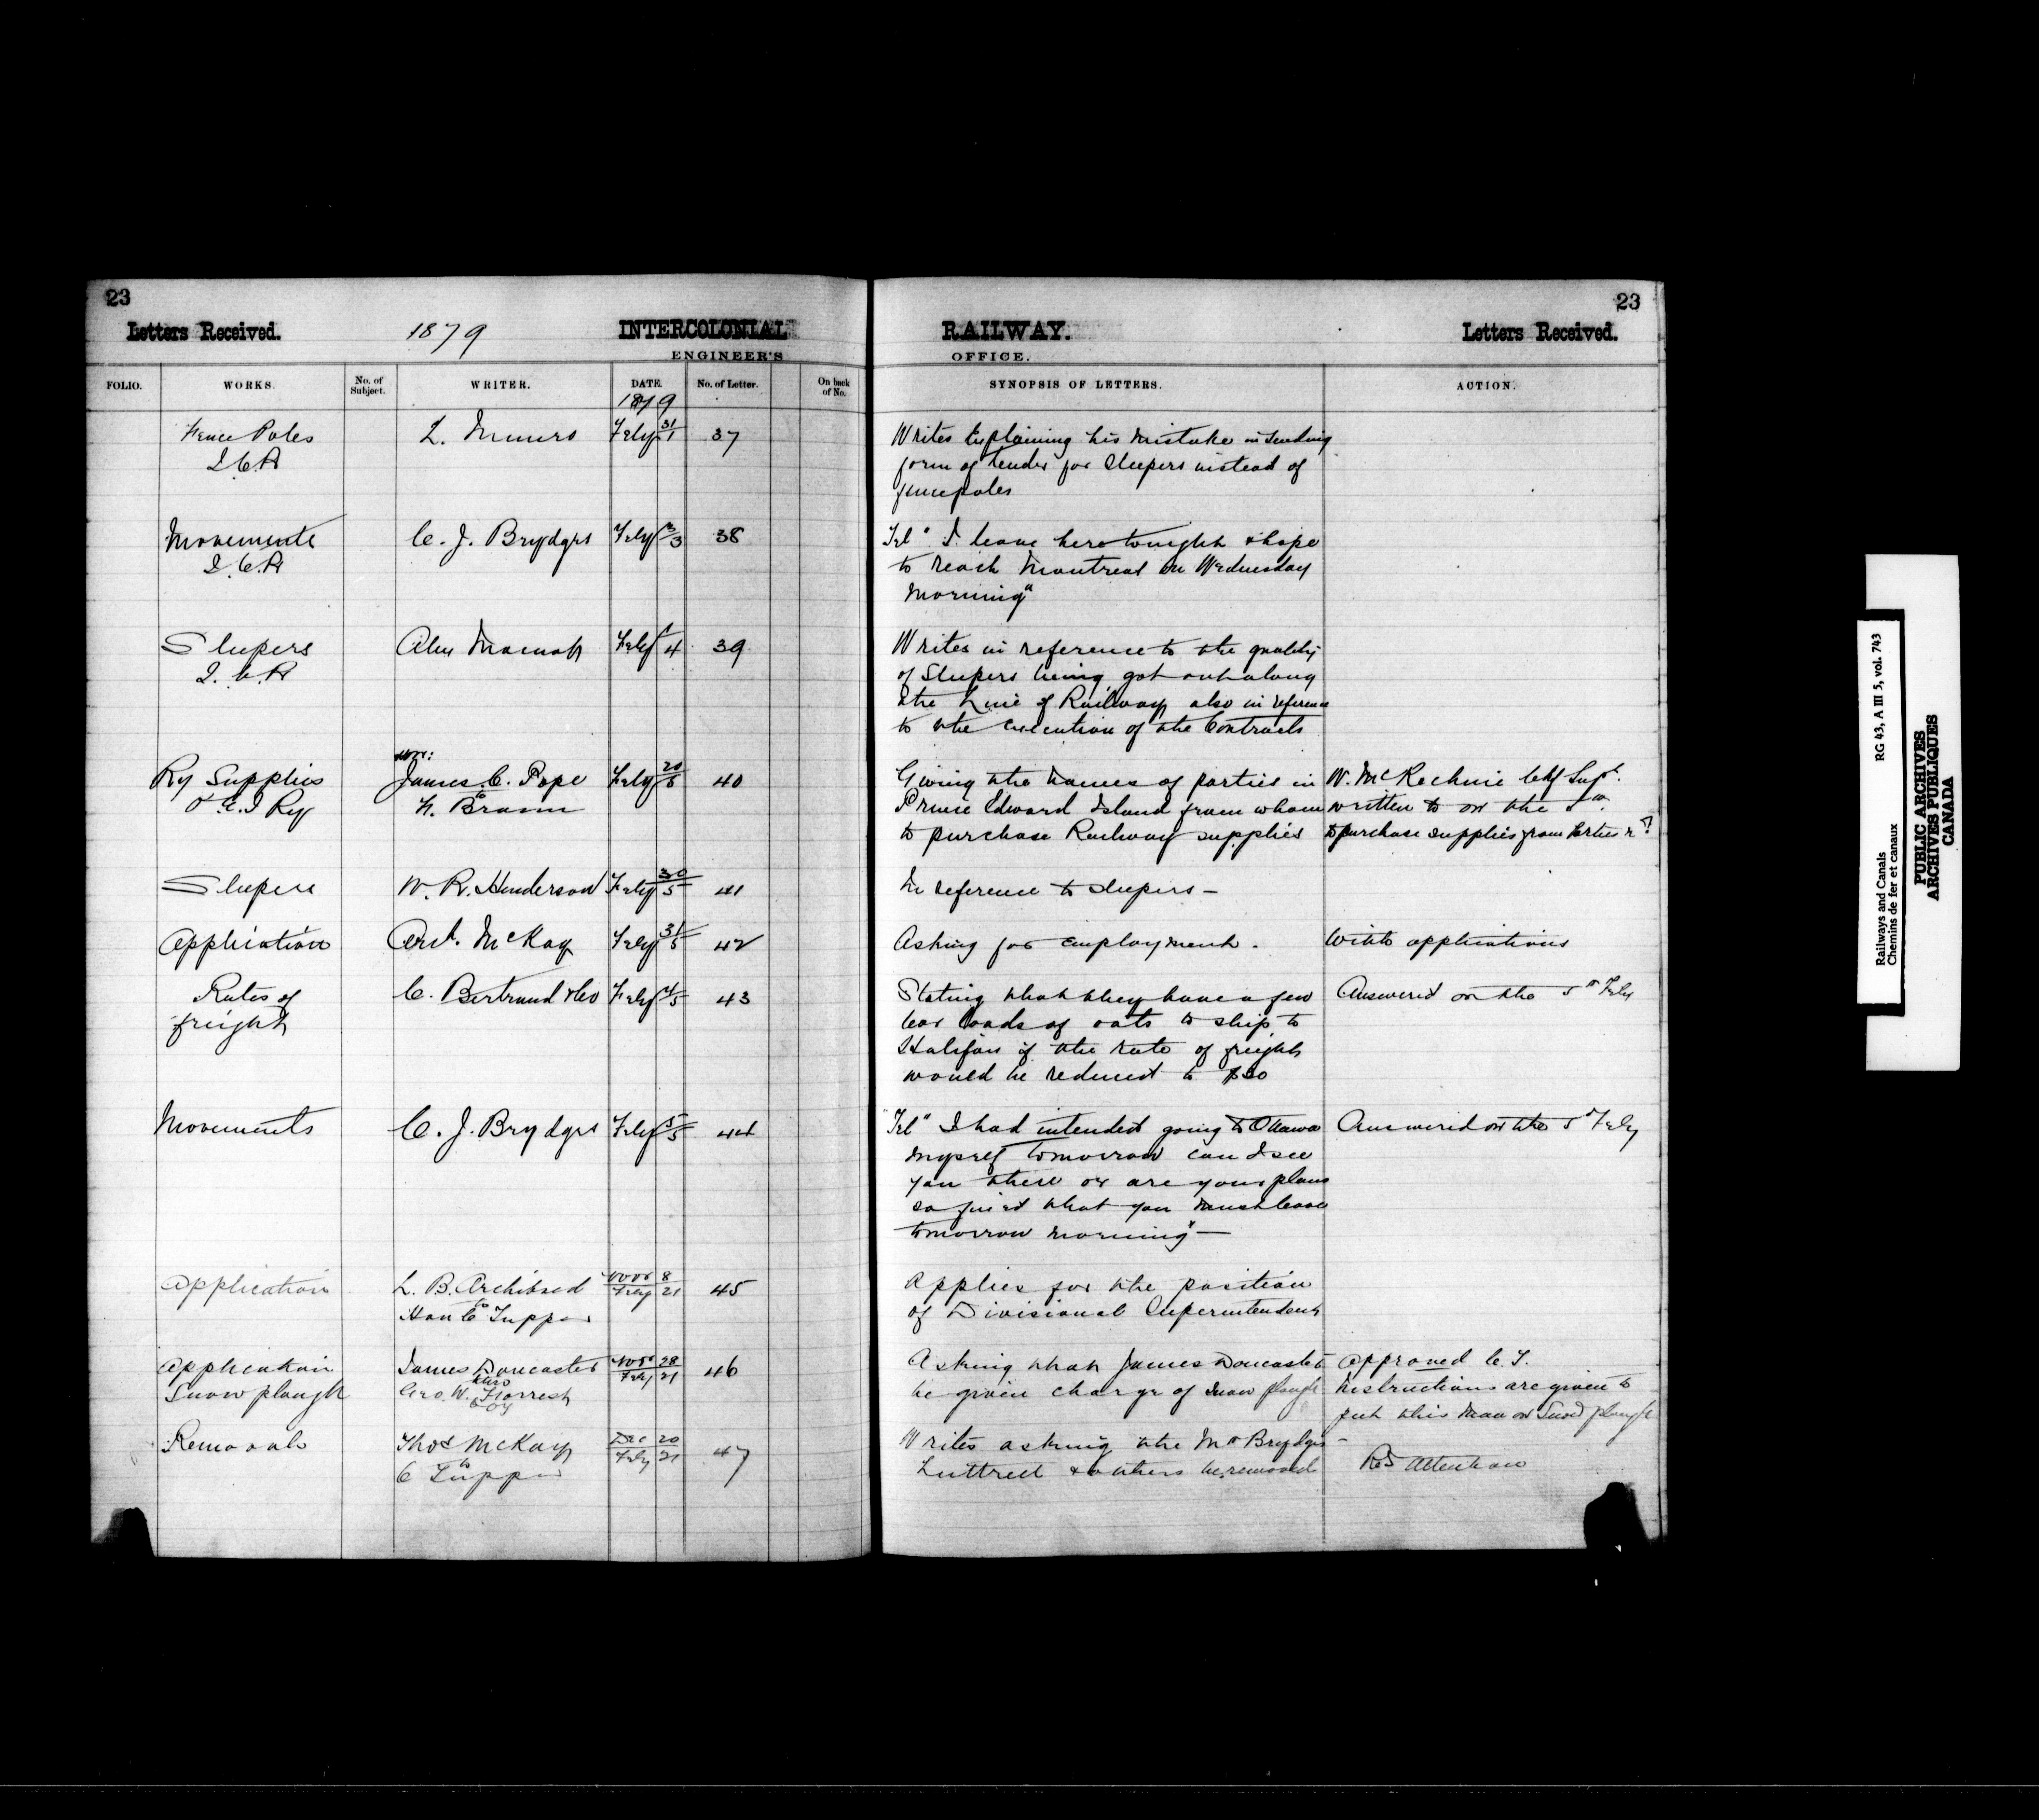 23
Letters Received.
1879
INTERCOLONIAL
ENGINEER'S
FOLIO. WORKS. No. of Subject. WRITER. DATE. No. of Letter. On back of No.
1879
Fence Poles L. Feby 31/1 37
I.C.R
Movements C. J. Brydges Feby 3/3 38
I.C.R
Sleepers Alex Feby 1/4 39
I.C.R
Hon:
Ry Supplies James C. Pope Feby 20/5 40
P.E.I Ry to F. Braun
Sleepers W. R. Henderson Feby 30/5 41
Application McKay Feby 31/5 42
Rates of C. Bertrand & Co Feby 4/5 43
freight
Movements C. J. Brydges Feby 5/5 44
Application L. B. Archibald Nov 8 Feby 21 45
to Hon C Tupper
Application James Doncaster Nov 28 Feby 21 46
Snow plough Geo. W. Forrest
Removals Thos McKay Dec 20 Feby 21 47
to C Tupper
23
RAILWAY.
Letters Received.
OFFICE.
SYNOPSIS OF LETTERS. ACTION.
Writes Explaining his mistake in sending
form of tender for Sleepers instead of
fencepoles
Tel "I leave here tonight & hope
to reach Montreal on Wednesday
Morning"
Writes in reference to the quality
of Sleepers being got out along
the Line of Railway also in reference
to the execution of the Contracts
Giving the names of parties in W. McKechnie
Prince Edward Island from whom written to on the 5th
to purchase Railway supplies to purchase supplies from Parties
In reference to sleepers —
Asking for employment. With applications
Stating that they have a few Answered on the 5th Feby
Car loads of oats to ship to
Halifax if the rate of freight
would be reduced to $30
Tel "I had intended going to Ottawa Answered on the 5 Feby
myself tomorrow can I see
you there or are your plans
so fixed that you must leave
tomorrow morning" —
Applies for the position
of Divisional Superintendent
Asking that James Doncaster approved C. T.
be given charge of Snow plough Instructions are given to
put this man on Snow plough
Writes asking the Mr Brydges
Luttrell & others be removed Attention
Railways and Canals RG 43, A III 5, vol. 743
Chemins de fer et canaux
PUBLIC ARCHIVES
ARCHIVES PUBLIQUES
CANADA